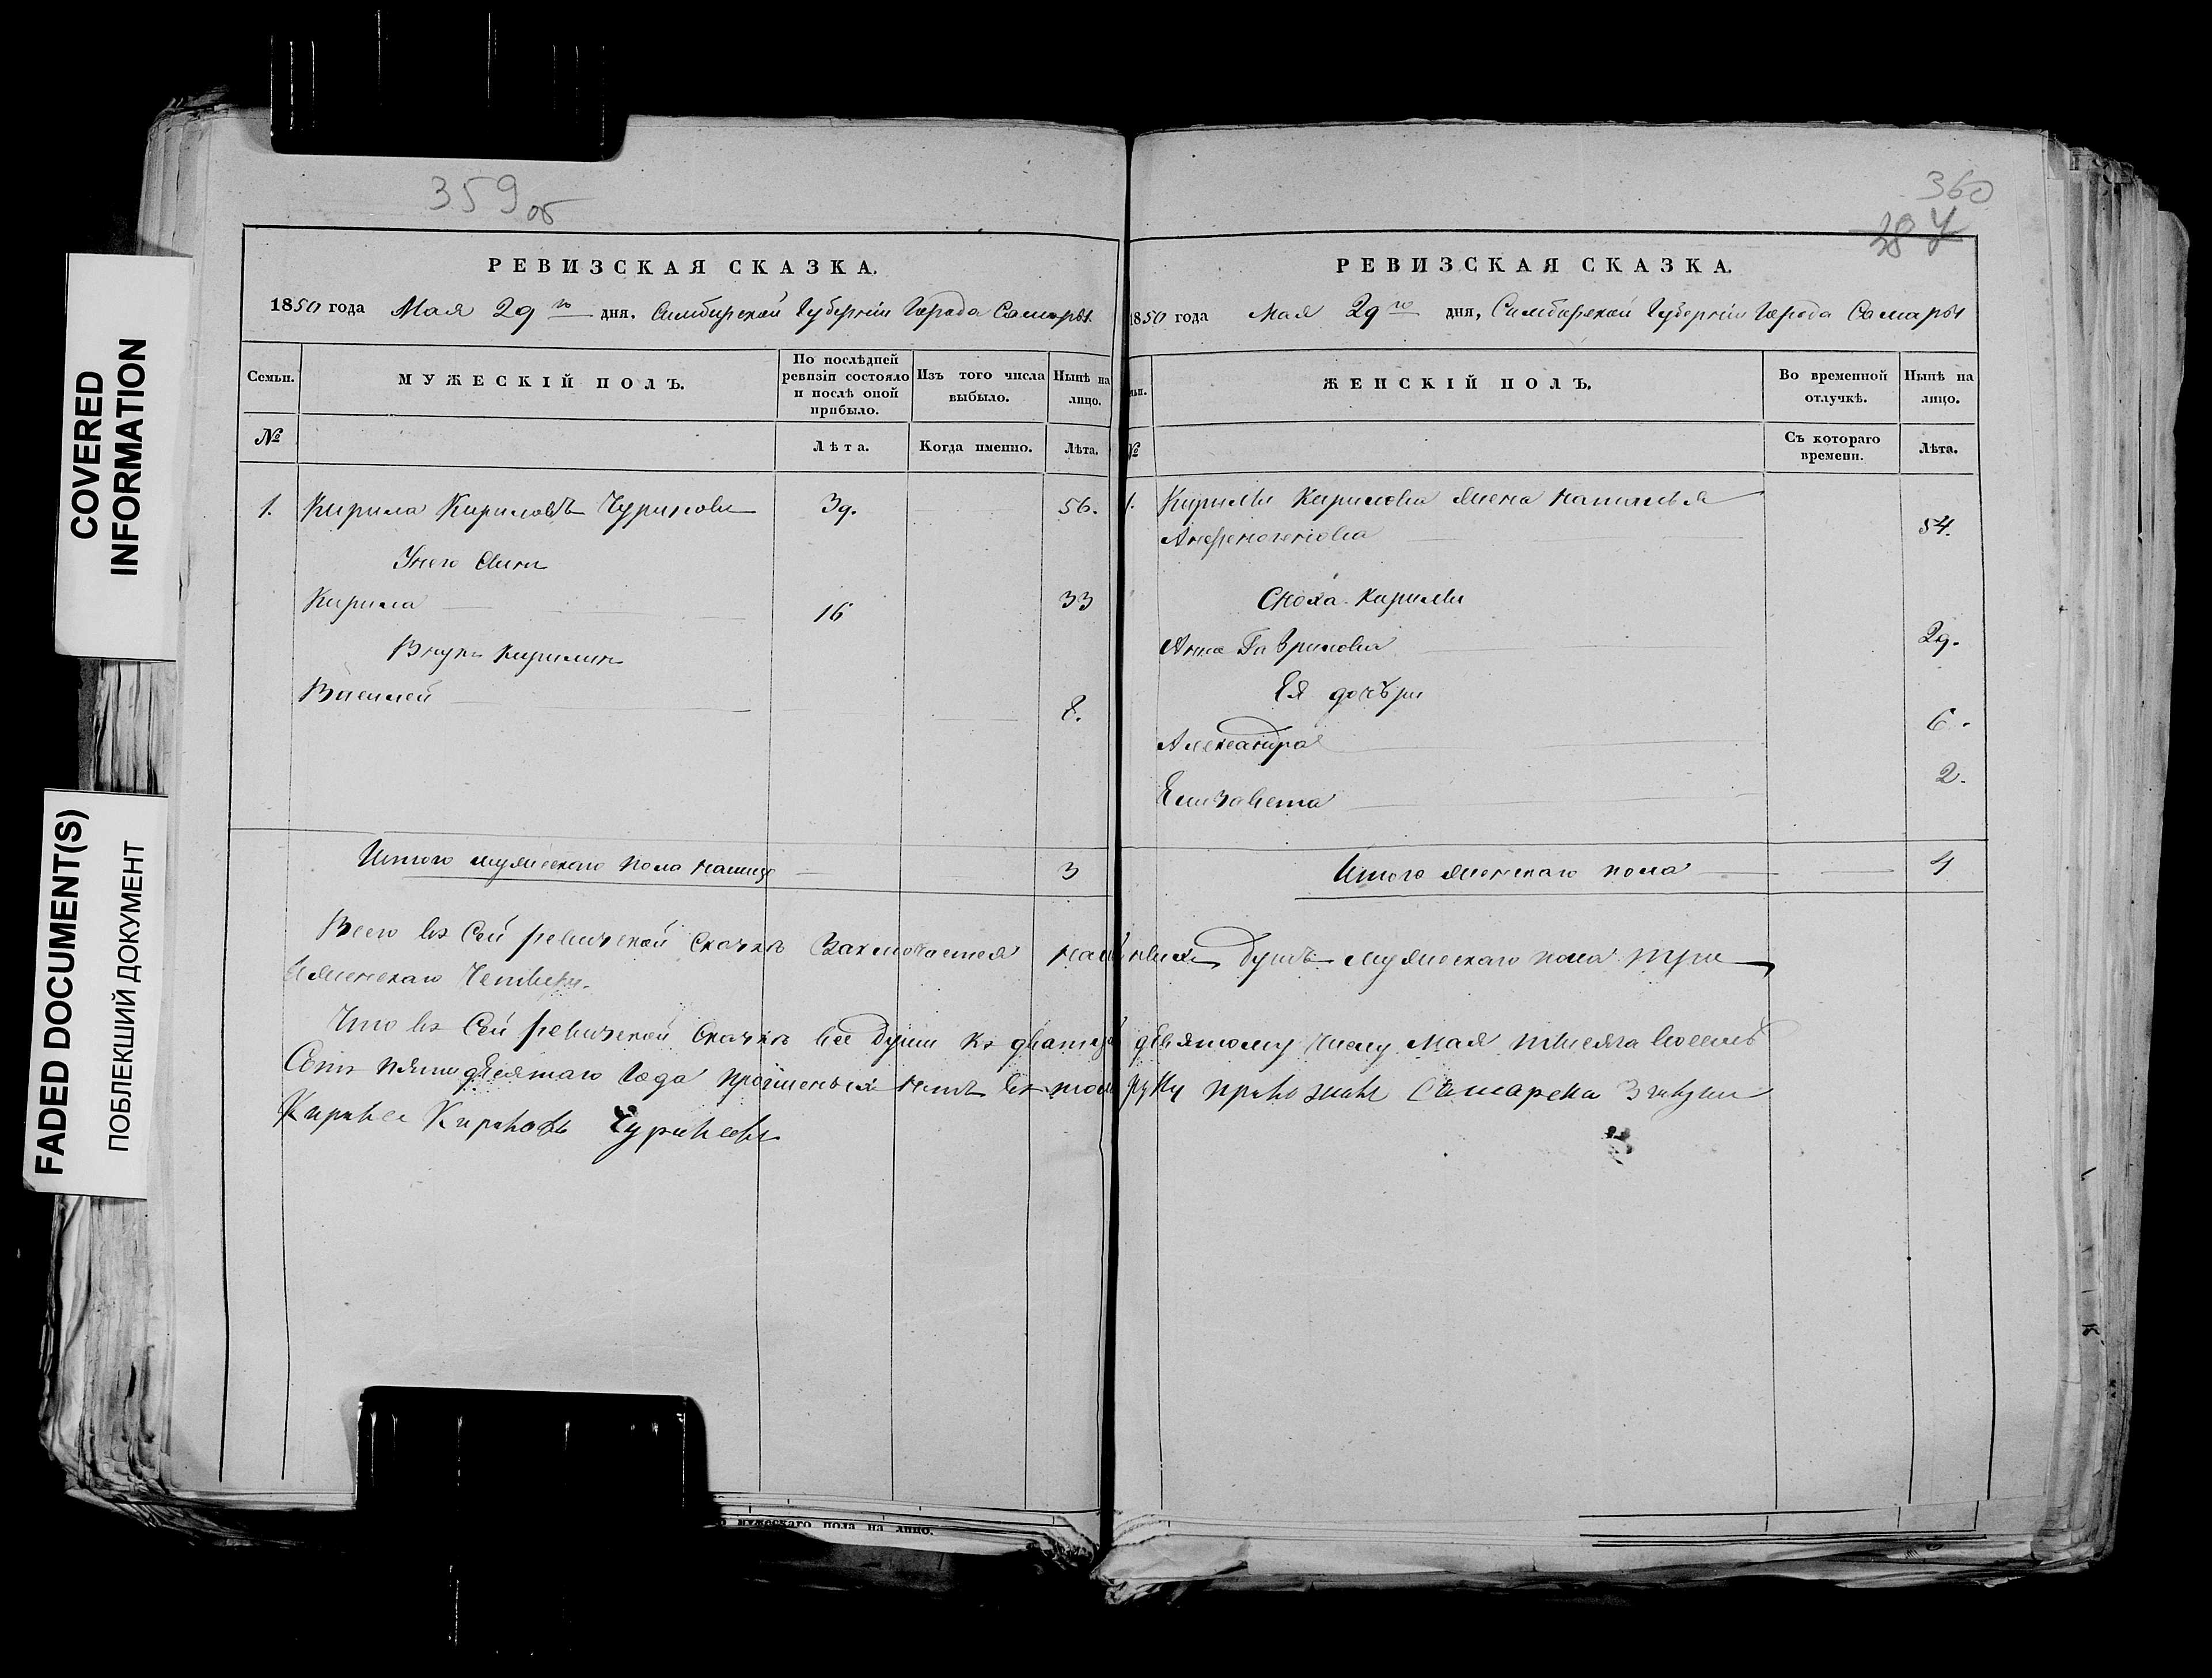 COVERED
INFORMATION
FADED DOCUMENT(S)
ПОБЛЕКШИЙ ДОКУМЕНТ
359 об
РЕВИЗСКАЯ СКАЗКА.
1850 года Мая 29 го дня. Симбирской Губернiи Города Самары
Семьи.
МУЖЕСКІЙ ПОЛЪ.
По послѣдней ревизіи состояло и послѣ оной прибыло.
Изъ того числа выбыло.
Нынѣ на лицо.
№
Лѣта.
Когда именно.
Лѣта.
1. Кирила Кириловъ Чуриловъ 39. 56.
У него сынъ
Кирила 16 33
Внукъ Кирилинъ
Василей 8.
Итого мужескаго пола налицо 3
360
РЕВИЗСКАЯ СКАЗКА.
1850 года Мая 29 го дня, Симбирской Губернiи Города Самары
ЖЕНСКІЙ ПОЛЪ.
Во временной отлучкѣ.
Нынѣ на лицо.
№
Съ котораго времени.
Лѣта.
1. Кирилы Кирилова жена Наталья
54.
Сноха Кирилы
Анна Гаврилова 29.
Ея дочѣри
Александра 6.
Елизавета 2.
Итого женскаго пола 4
Всего въ сей ревиской скаскѣ заключается душъ мужескаго пола три
женскаго четыри.
Что въ сей ревиской скаскѣ все души къ двацать девятому числу Мая тысяча восемь
Сотъ пятидесятаго года нетъ въ том руку
Чуриловъ
мужескаго пола на лицо.